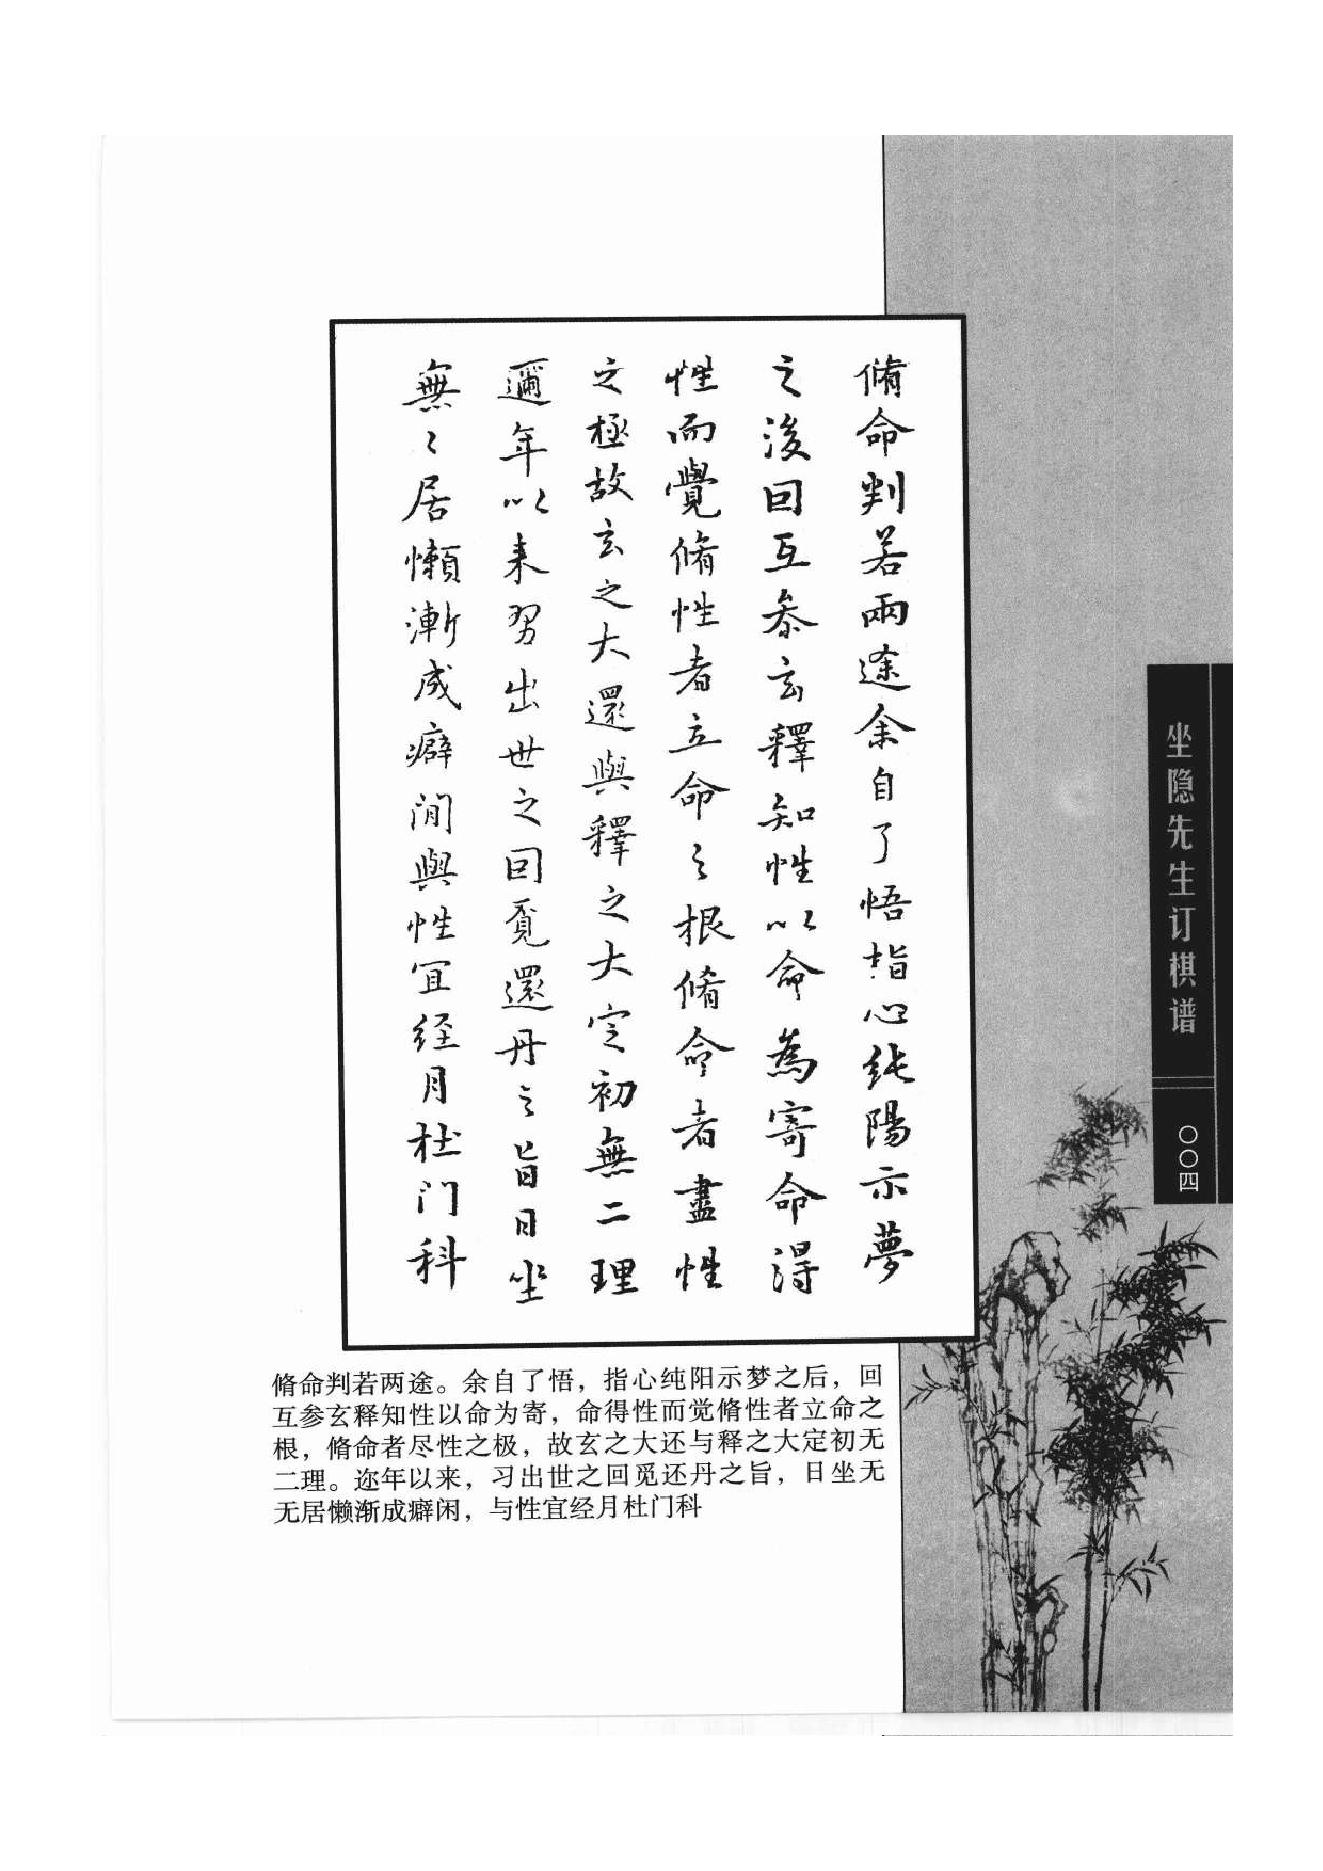 脩命判若兩途余自了悟指心純陽示夢
之後回互叅玄釋知性以命為寄命得
性而覺脩性者立命之根脩命者盡性
之極故玄之大還與釋之大定初無二理
邇年以来習出世之回覓還丹之旨日坐
無〻居懶漸成癖閒與性宜经月杜门科
脩命判若两途。余自了悟，指心纯阳示梦之后，回
互参玄释知性以命为寄，命得性而觉脩性者立命之
根，脩命者尽性之极，故玄之大还与释之大定初无
二理。迩年以来，习出世之回觅还丹之旨，日坐无
无居懒渐成癖闲，与性宜经月杜门科
坐隐先生订棋谱
〇〇四